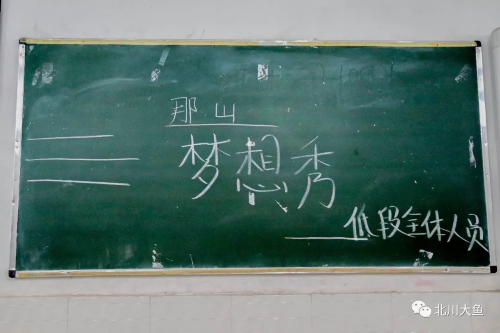 那山
梦想秀
低段全体人员
北川大鱼